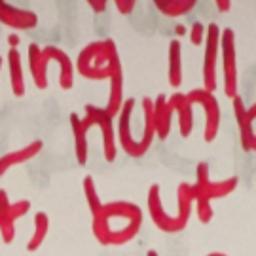 ing ill
numb
, but